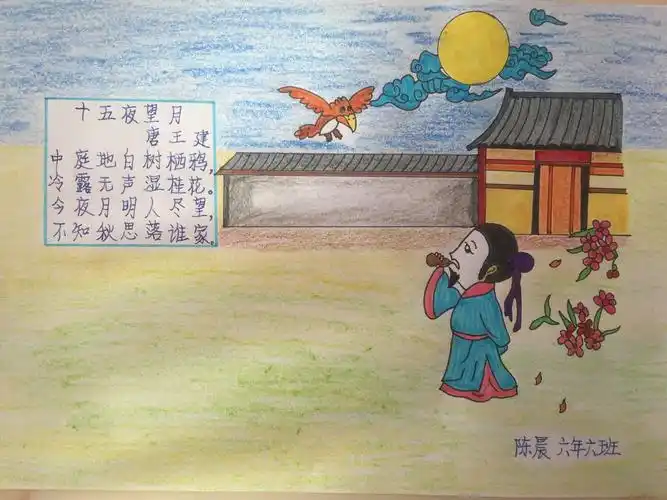 十五夜望月
唐王建
中庭地白树栖鸦，
冷露无声湿桂花。
今夜月明人尽望，
不知秋思落谁家。
陈晨 六年六班